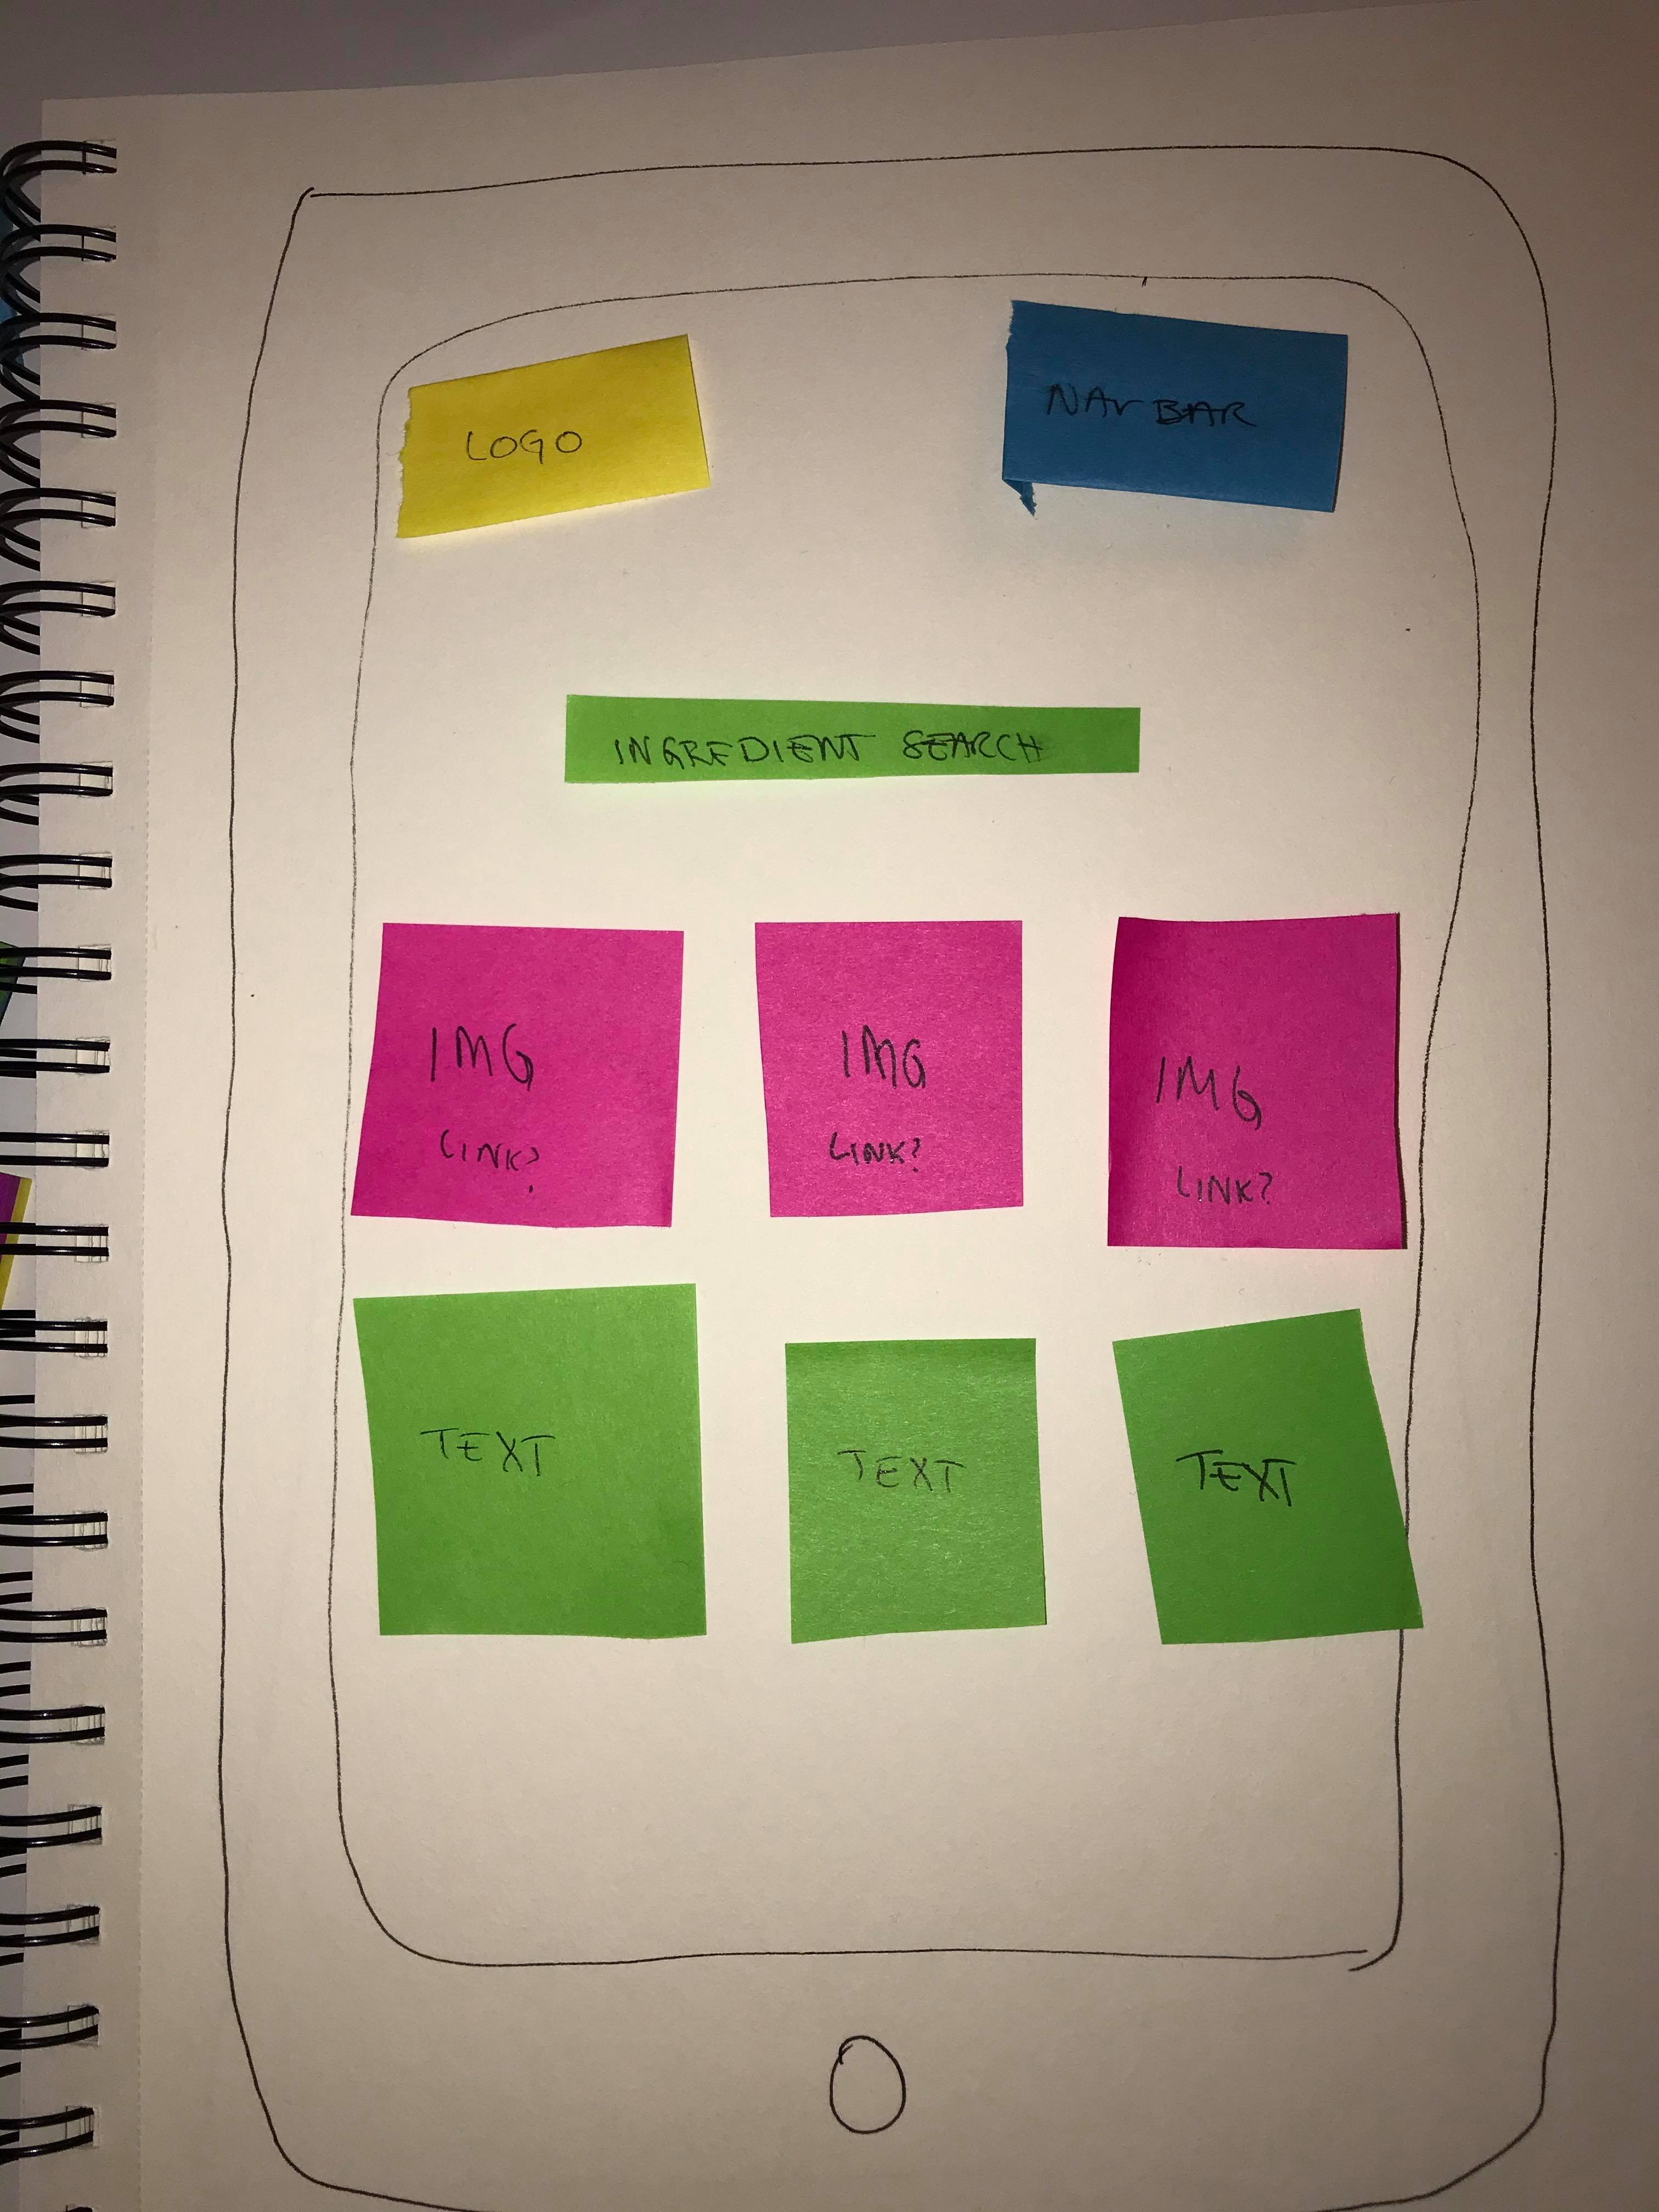 LOGO
NAV BAR
INGREDIENT SEARCH
IMG
LINK?
IMG
LINK?
IMG
LINK?
TEXT
TEXT
TEXT